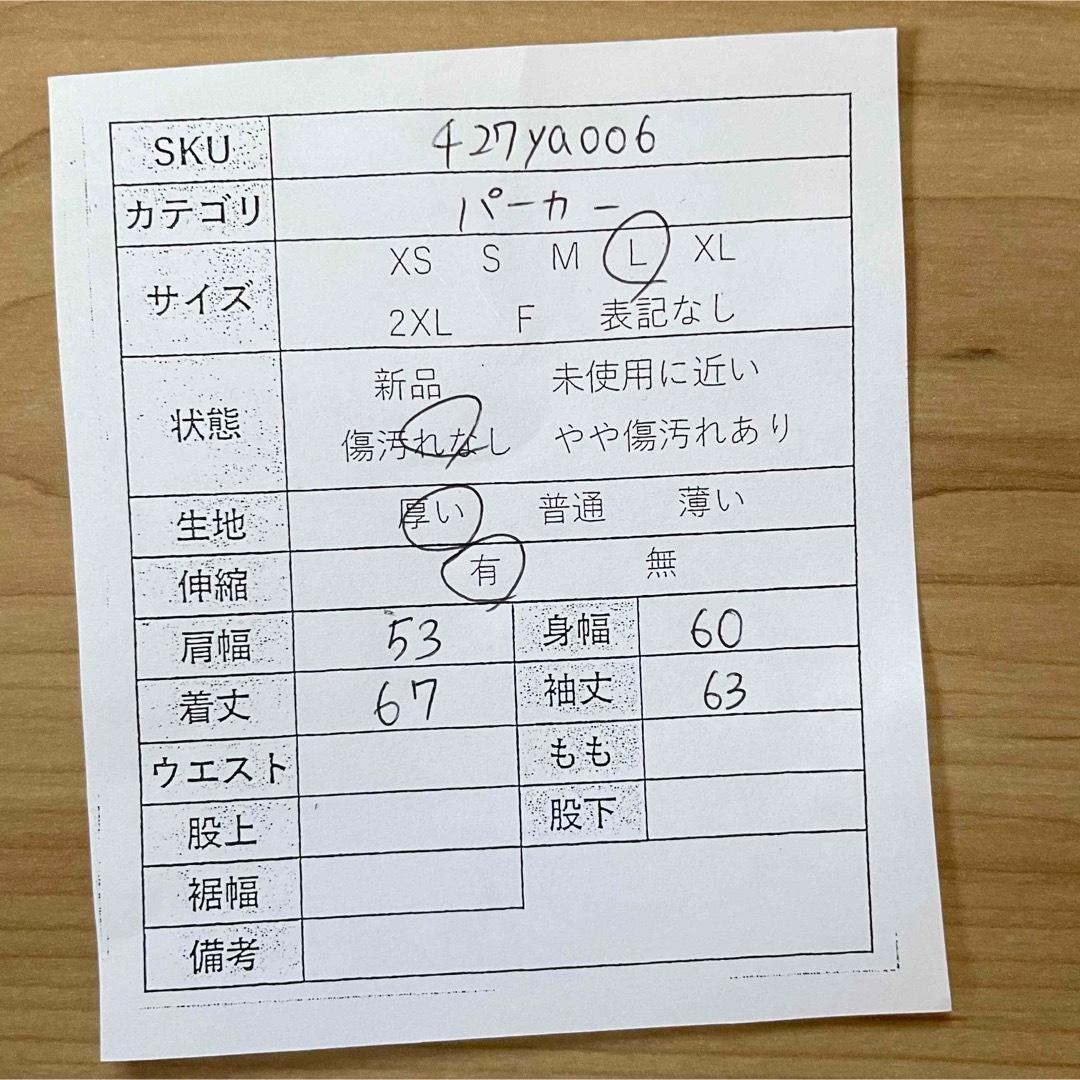 SKU 427ya006
カテゴリ パーカー
サイズ XS S M L XL
2XL F 表記なし
状態 新品 未使用に近い
傷汚れなし やや傷汚れあり
生地 厚い 普通 薄い
伸縮 有 無
肩幅 53 身幅 60
着丈 67 袖丈 63
ウエスト もも
股上 股下
裾幅
備考